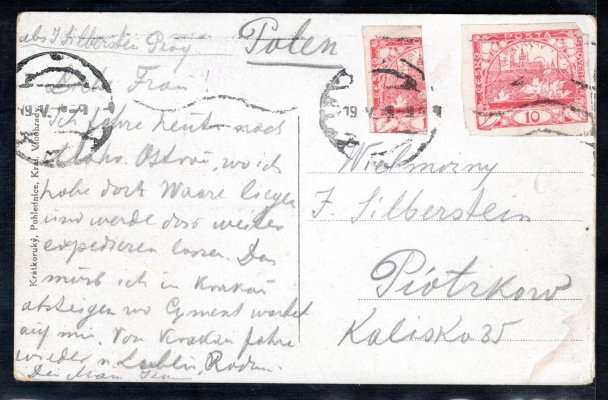 abs J Silberstein Prag
Polen
Lieb. Frau!
Ich fahre heute nach
Mähr. Ostrau, wo ich
habe dort Waare liegen
und werde dort weiter
expedieren lassen. Dan
muss ich in Krakau
absteigen wo Cyment wartet
auf mir. Von Krakau fahre
wieder n. Lublin, Radom.
Dei Man
Krátkoruký, Pohlednice, Král. Vinohrady
POSTA
ČESKO
10
Wielmozny
J. Silberstein
Piotrkow
Kaliska 35